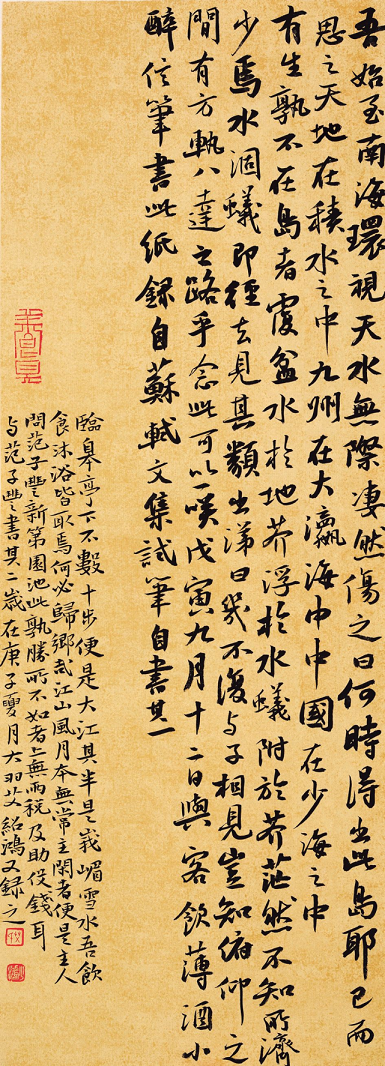 吾始至南海環視天水無際凄然傷之曰何時得出此島耶已而
思之天地在積水之中九州在大瀛海中中國在少海之中
有生孰不在島者覆盆水於地芥浮於水蟻附於芥茫然不知所濟
少焉水涸蟻即徑去見其類出涕曰幾不復與子相見豈知俯仰之
間有方軌八達之路乎念此可以一笑戊寅九月十二日與客飲薄酒小
醉信筆書此紙錄自蘇軾文集試筆自書其一
臨皋亭下不數十步便是大江其半是峨嵋雪水吾飲
食沐浴皆取焉何必歸鄉哉江山風月本無常主閑者便是主人
問范子豐新第園池此孰勝所不如者上無兩稅及助役錢耳
与范子豐書其二歲在庚子夏月大羽艾紹鴻又録之